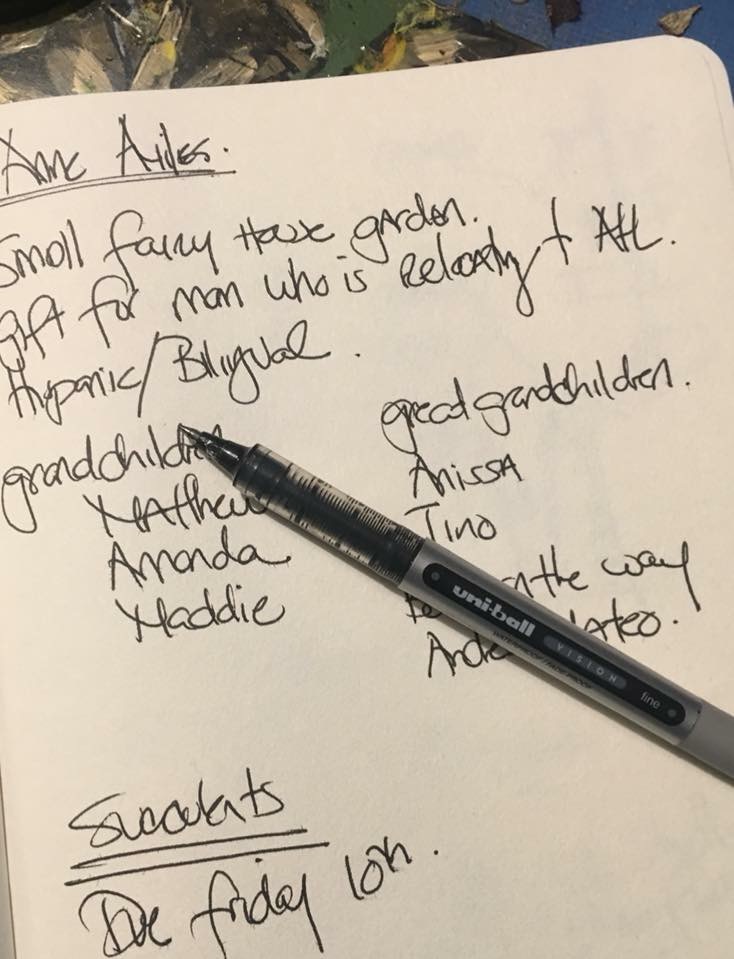 Anne Ailes.
Small fairy House garden.
Gift for man who is Relocating to Atl.
Hispanic/Bilingual.
grandchildren
Matthew
Amanda
Maddie
great grandchildren.
Anissa
Tino
on the way
Mateo.
uni-ball
VISION
fine
WATERPROOF/FADE PROOF
Succulents
Due friday 10th.